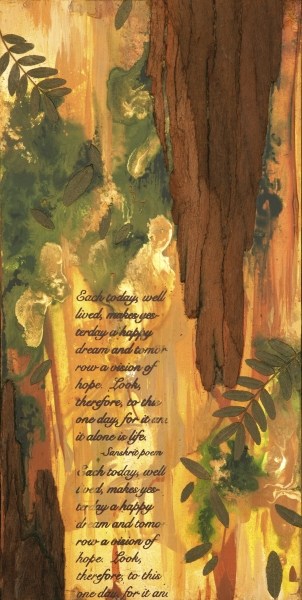 Each today, well
lived, makes yes-
terday a happy
dream and tomor
row a vision of
hope. Look,
therefore, to this
one day, for it and
it alone is life.
-Sanskrit poem
Each today, well
lived, makes yes-
terday a happy
dream and tomo
row a vision of
hope. Look,
therefore, to this
one day, for it an